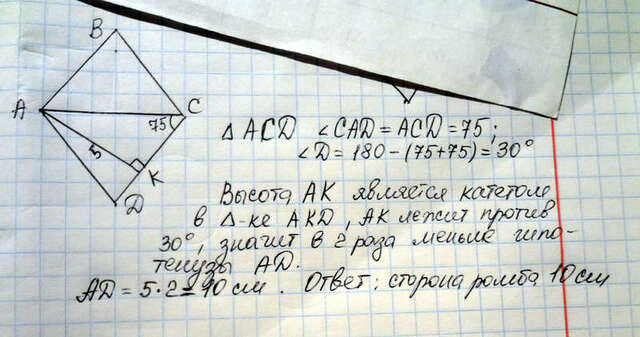 B
A
C
75
5
K
D
Δ ACD ∠CAD = ACD = 75;
∠D = 180 - (75+75) = 30°
Высота AK является катетом
в Δ-ке AKD, AK лежит против
30°, значит в 2 раза меньше гипо-
тенузы AD.
AD = 5·2 = 10 см. Ответ: сторона ромба 10 см